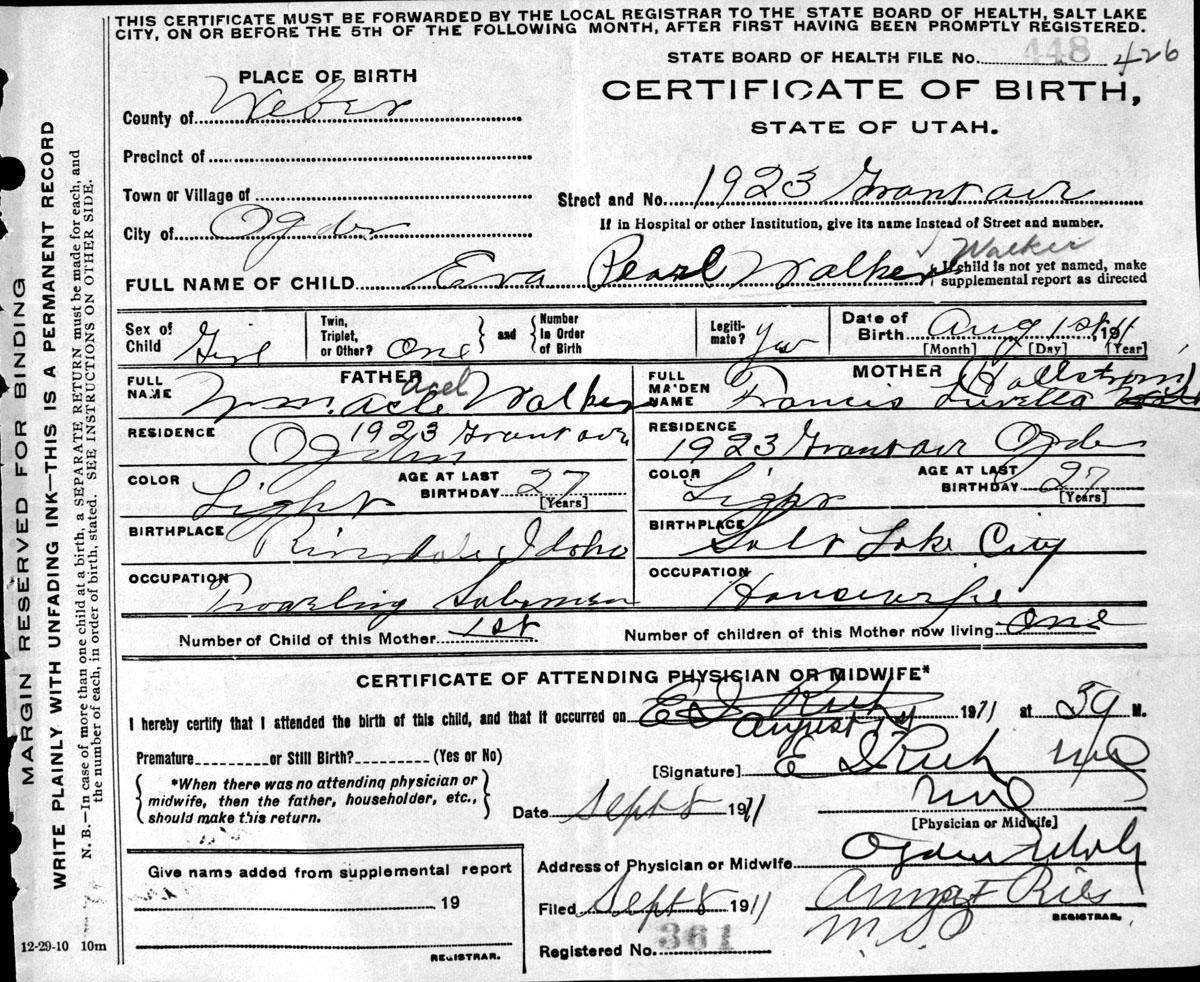 THIS CERTIFICATE MUST BE FORWARDED BY THE LOCAL REGISTRAR TO THE STATE BOARD OF HEALTH, SALT LAKE
CITY, ON OR BEFORE THE 5TH OF THE FOLLOWING MONTH, AFTER FIRST HAVING BEEN PROMPTLY REGISTERED.
STATE BOARD OF HEALTH FILE No. 448 426
PLACE OF BIRTH
CERTIFICATE OF BIRTH,
STATE OF UTAH.
County of Weber
Precinct of
Town or Village of
Street and No. 1923 Grant ave
City of Ogden
If in Hospital or other Institution, give its name instead of Street and number.
FULL NAME OF CHILD Eva Pearl Walker Walker
{ If child is not yet named, make
supplemental report as directed
Sex of Child Girl
Twin, Triplet, or Other? One
and Number in Order of Birth
Legitimate? yes
Date of Birth Aug 1st 1911
[Month] [Day] [Year]
FATHER
FULL NAME Wm. Acle Acel Walker
RESIDENCE 1923 Grant ave
Ogden
COLOR Light
AGE AT LAST BIRTHDAY 27
[Years]
BIRTHPLACE Riverdale, Idaho
OCCUPATION Traveling Salesman
MOTHER
FULL MAIDEN NAME Francis Luvella (Hallstrom)
RESIDENCE
1923 Grant ave Ogden
COLOR Light
AGE AT LAST BIRTHDAY 27
[Years]
BIRTHPLACE Salt Lake City
OCCUPATION Housewife
Number of Child of this Mother 1st
Number of children of this Mother now living One
CERTIFICATE OF ATTENDING PHYSICIAN OR MIDWIFE*
I hereby certify that I attended the birth of this child, and that it occurred on E I Rich August 1st 1911 at 59 M.
Premature or Still Birth? (Yes or No)
[Signature] E I Rich MD
*When there was no attending physician or
midwife, then the father, householder, etc.,
should make this return.
Date Sept 8 1911 MD
[Physician or Midwife]
Give name added from supplemental report
19
REGISTRAR.
Address of Physician or Midwife Ogden Utah
Filed Sept 8 1911
REGISTRAR.
Registered No. 361
12-29-10 10m
MARGIN RESERVED FOR BINDING
WRITE PLAINLY WITH UNFADING INK—THIS IS A PERMANENT RECORD
N. B.—In case of more than one child at a birth, a SEPARATE RETURN must be made for each, and
the number of each, in order of birth, stated. SEE INSTRUCTIONS ON OTHER SIDE.